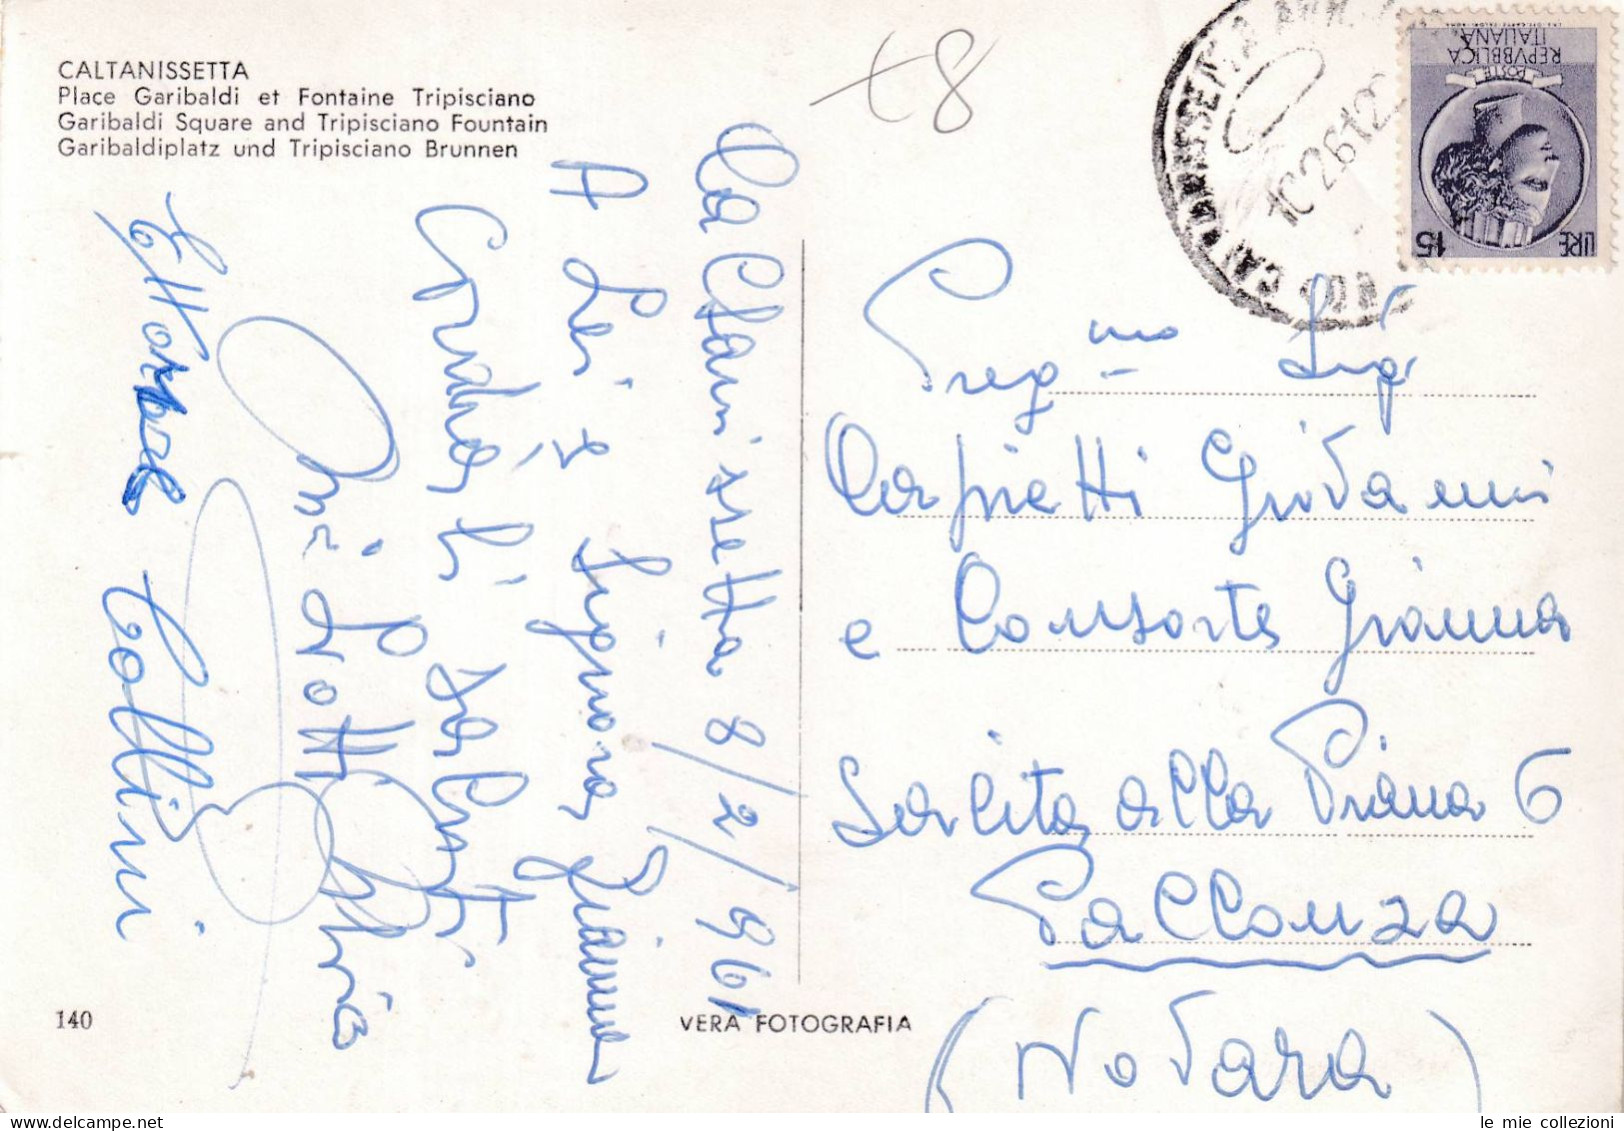 CALTANISSETTA
Place Garibaldi et Fontaine Tripisciano
Garibaldi Square and Tripisciano Fountain
Garibaldiplatz und Tripisciano Brunnen
+8
Caltanissetta 8/2/961
A Lei e Signora Gianna
Cordiali saluti
Lotti
Ettore Collini
REPVBBLICA
ITALIANA
POSTE
LIRE 15
10 2 61 22
Preg mo Sig
Carpietti Giovanni
e Consorte Gianna
Salita alla Piana 6
Pallanza
(Novara)
140
VERA FOTOGRAFIA
le mie collezioni